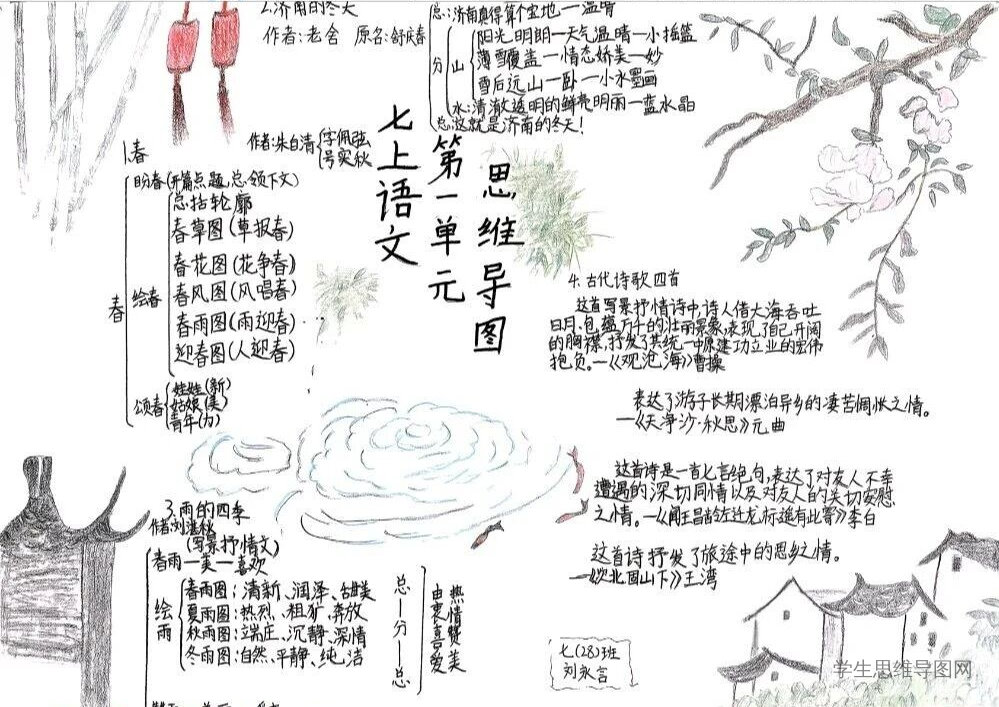 七上语文
第一单元
思维导图
1.春
作者:朱自清
字佩弦
号实秋
春
盼春(开篇点题,总领下文)
绘春
总括轮廓
春草图(草报春)
春花图(花争春)
春风图(风唱春)
春雨图(雨迎春)
迎春图(人迎春)
颂春
娃娃(新)
姑娘(美)
青年(力)
2.济南的冬天
作者:老舍 原名:舒庆春
总:济南真得算个宝地—温晴
分
山
阳光明朗—天气温晴—小摇篮
薄雪覆盖—情态娇美—妙
雪后远山—卧—小水墨画
水:清澈透明的鲜亮明丽—蓝水晶
总:这就是济南的冬天!
3.雨的四季
作者:刘湛秋
(写景抒情文)
春雨—美—喜欢
绘雨
春雨图:清新、润泽、甜美
夏雨图:热烈、粗犷、奔放
秋雨图:端庄、沉静、深情
冬雨图:自然、平静、纯洁
总—分—总
热情赞美
由衷喜爱
4.古代诗歌四首
这首写景抒情诗中,诗人借大海吞吐
日月、包蕴万千的壮丽景象,表现了自己开阔
的胸襟,抒发了其统一中原建功立业的宏伟
抱负。—《观沧海》曹操
表达了游子长期漂泊异乡的凄苦惆怅之情。
—《天净沙·秋思》元曲
这首诗是一首七言绝句,表达了对友人不幸
遭遇的深切同情以及对友人的关切安慰
之情。—《闻王昌龄左迁龙标遥有此寄》李白
这首诗抒发了旅途中的思乡之情。
—《次北固山下》王湾
七(28)班
刘永言
学生思维导图网